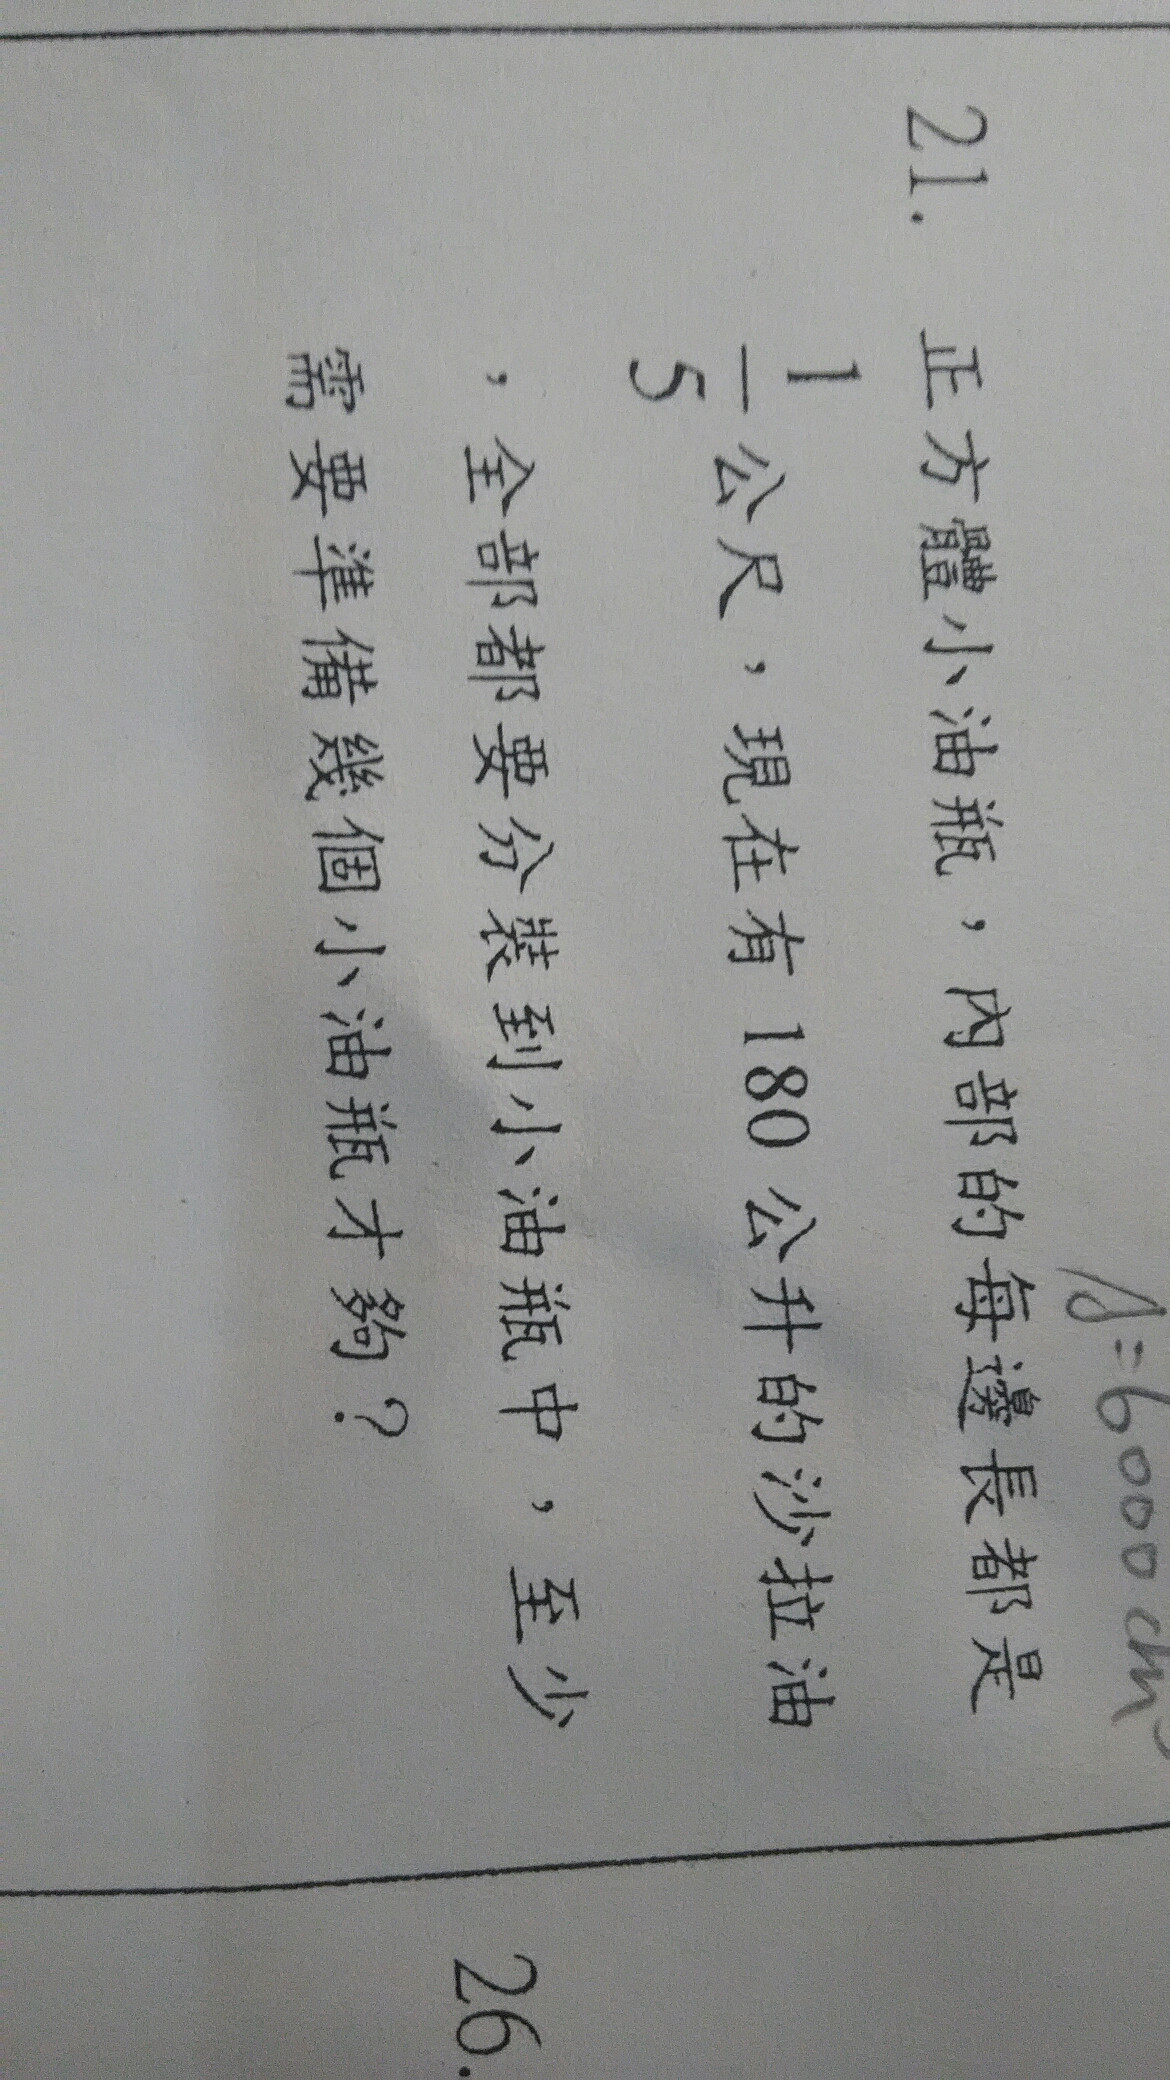 =6000cm³
21. 正方體小油瓶，內部的每邊長都是
1/5 公尺，現在有 180 公升的沙拉油
，全部都要分裝到小油瓶中，至少
需要準備幾個小油瓶才夠？
26.